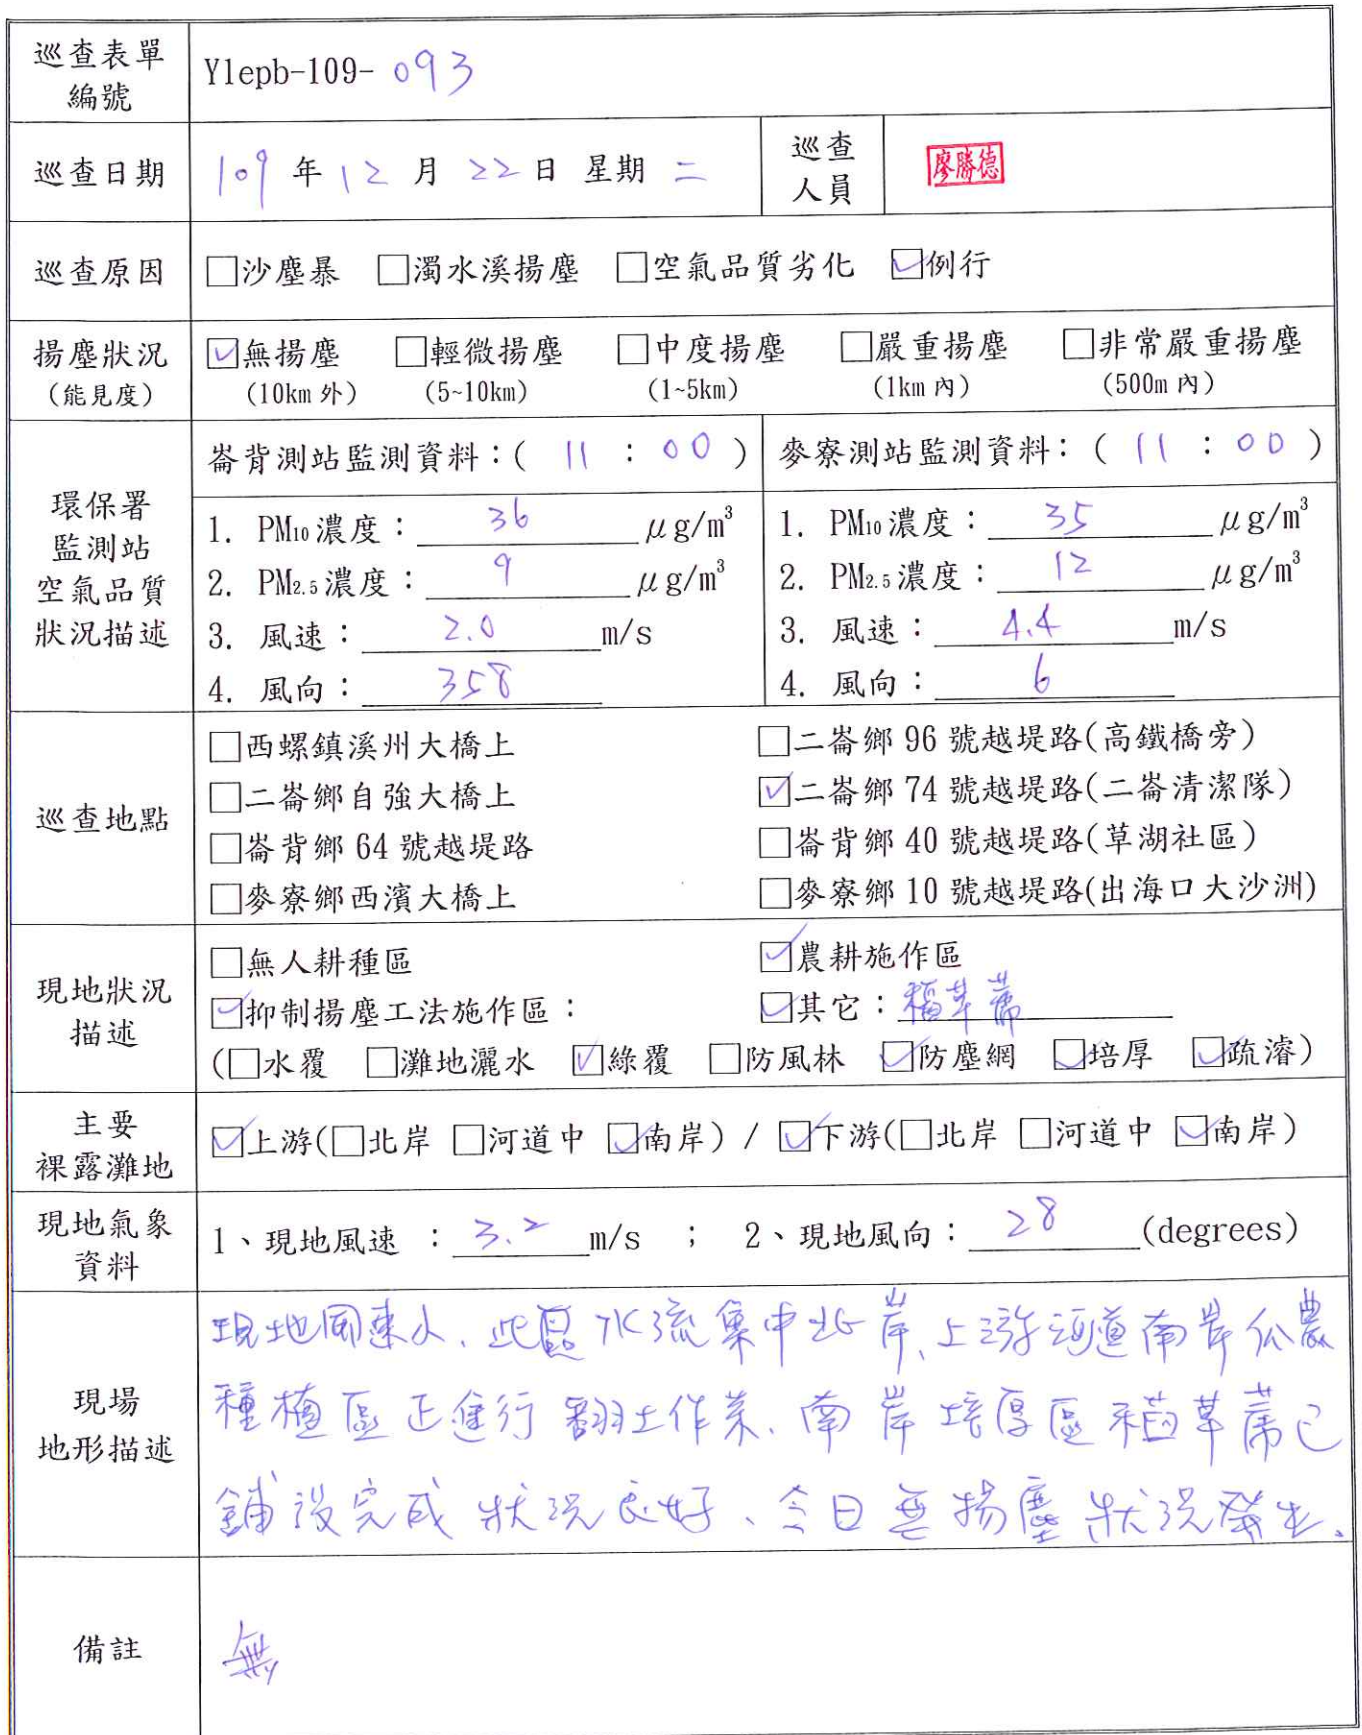 巡查表單
編號
Ylepb-109- 093
巡查日期
109 年 12 月 22 日 星期 二
巡查
人員
廖勝德
巡查原因
□沙塵暴 □濁水溪揚塵 □空氣品質劣化 ☑例行
揚塵狀況
(能見度)
☑無揚塵 □輕微揚塵 □中度揚塵 □嚴重揚塵 □非常嚴重揚塵
(10km 外) (5~10km) (1~5km) (1km 內) (500m 內)
環保署
監測站
空氣品質
狀況描述
崙背測站監測資料：( 11 : 00 )
1. PM10 濃度： 36 μg/m³
2. PM2.5 濃度： 9 μg/m³
3. 風速： 2.0 m/s
4. 風向： 358
麥寮測站監測資料：( 11 : 00 )
1. PM10 濃度： 35 μg/m³
2. PM2.5 濃度： 12 μg/m³
3. 風速： 4.4 m/s
4. 風向： 6
巡查地點
□西螺鎮溪州大橋上 □二崙鄉 96 號越堤路(高鐵橋旁)
□二崙鄉自強大橋上 ☑二崙鄉 74 號越堤路(二崙清潔隊)
□崙背鄉 64 號越堤路 □崙背鄉 40 號越堤路(草湖社區)
□麥寮鄉西濱大橋上 □麥寮鄉 10 號越堤路(出海口大沙洲)
現地狀況
描述
□無人耕種區 ☑農耕施作區
☑抑制揚塵工法施作區： ☑其它：稻草蓆
(□水覆 □灘地灑水 ☑綠覆 □防風林 ☑防塵網 ☑培厚 ☑疏濬)
主要
裸露灘地
☑上游(□北岸 □河道中 ☑南岸) / ☑下游(□北岸 □河道中 ☑南岸)
現地氣象
資料
1、現地風速 ： 3.2 m/s ； 2、現地風向： 28 (degrees)
現場
地形描述
現地風速小、此區水流集中北岸、上游河道南岸瓜農
種植區正進行翻土作業、南岸培厚區稻草蓆已
鋪設完成狀況良好、今日無揚塵狀況發生、
備註
無